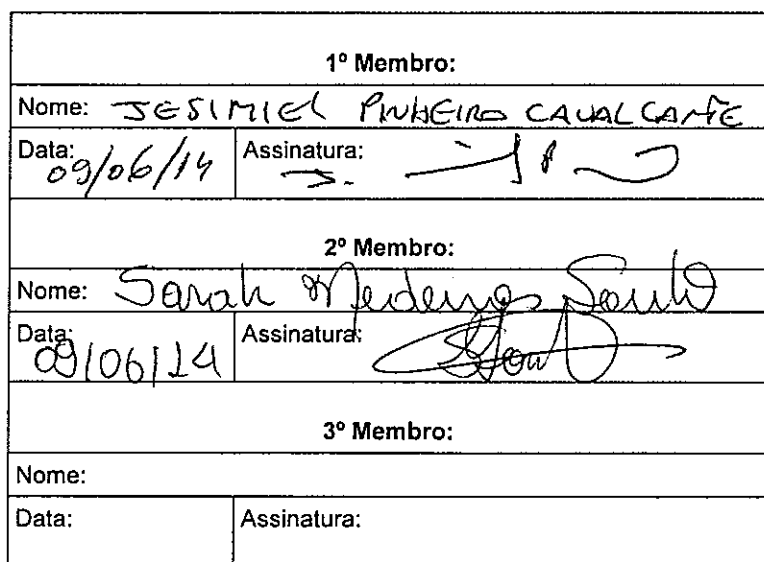 1º Membro:
Nome: JESIMIEL PINHEIRO CAVALCANTE
Data: 09/06/14 Assinatura:
2º Membro:
Nome: Sarah Medeiros Souto
Data: 09/06/14 Assinatura:
3º Membro:
Nome:
Data: Assinatura: